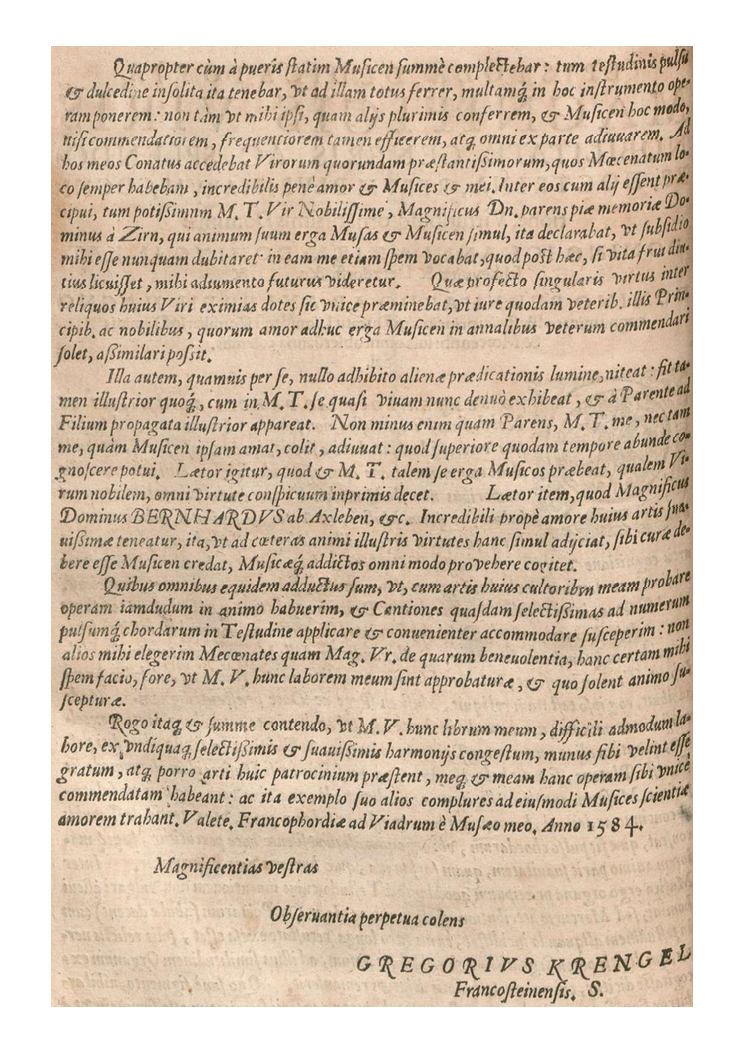 Quapropter cùm à pueris ſtatim Muſicen ſummè complectebar : tum teſtudinis pulſu
& dulcedine inſolita ita tenebar, vt ad illam totus ferrer, multamq́; in hoc inſtrumento ope-
ram ponerem : non tàm vt mihi ipſi, quam alijs plurimis conferrem, & Muſicen hoc modo,
niſi commendatiorem, frequentiorem tamen efficerem, atq; omni ex parte adiuuarem. Ad
hos meos Conatus accedebat Virorum quorundam præſtantiſsimorum, quos Mœcenatum lo-
co ſemper habebam, incredibilis penè amor & Muſices & mei. Inter eos cum alij eſſent præ-
cipui, tum potiſsimum M. T. Vir Nobiliſſime, Magnificus Dn. parens piæ memoriæ Do-
minus à Zirn, qui animum ſuum erga Muſas & Muſicen ſimul, ita declarabat, vt ſubſidio
mihi eſſe nunquam dubitaret: in eam me etiam ſpem vocabat, quod poſt hæc, ſi vita frui diu-
tius licuiſſet, mihi adiumento futurus videretur. Quæ profecto ſingularis virtus inter
reliquos huius Viri eximias dotes ſic vnice præminebat, vt iure quodam veterib. illis Prin-
cipib. ac nobilibus, quorum amor adhuc erga Muſicen in annalibus veterum commendari
ſolet, aſsimilari poſsit.
Illa autem, quamuis per ſe, nullo adhibito alienæ prædicationis lumine, niteat : fit ta-
men illuſtrior quoq́;, cum in M. T. ſe quaſi viuam nunc denuò exhibeat, & à Parente ad
Filium propagata illuſtrior appareat. Non minus enim quam Parens, M. T. me, nec tam
me, quàm Muſicen ipſam amat, colit, adiuuat : quod ſuperiore quodam tempore abunde co-
gnoſcere potui. Lætor igitur, quod & M. T. talem ſe erga Muſicos præbeat, qualem Vi-
rum nobilem, omni virtute conſpicuum inprimis decet. Lætor item, quod Magnificus
Dominus BERNHARDVS ab Axleben, &c. Incredibili propè amore huius artis ſua-
uiſsimæ teneatur, ita, vt ad cæteras animi illuſtris virtutes hanc ſimul adijciat, ſibi curæ de-
bere eſſe Muſicen credat, Muſicæq́; addictos omni modo provehere cogitet.
Quibus omnibus equidem adductus ſum, vt, cum artis huius cultoribus meam probare
operam iamdudum in animo habuerim, & Cantiones quaſdam ſelectiſsimas ad numerum
pulſumq́; chordarum in Teſtudine applicare & conuenienter accommodare ſuſceperim : non
alios mihi elegerim Mecœnates quam Mag. Vr. de quarum beneuolentia, hanc certam mihi
ſpem facio, fore, vt M. V. hunc laborem meum ſint approbaturæ, & quo ſolent animo ſu-
ſcepturæ.
Rogo itaq; & ſumme contendo, vt M. V. hunc librum meum, difficili admodum la-
bore, ex vndiquaq; ſelectiſsimis & ſuauiſsimis harmonijs congeſtum, munus ſibi velint eſſe
gratum, atq; porro arti huic patrocinium præſtent, meq; & meam hanc operam ſibi vnicè
commendatam habeant : ac ita exemplo ſuo alios complures ad eiuſmodi Muſices ſcientiæ
amorem trahant. Valete. Francophordiæ ad Viadrum è Muſæo meo. Anno 1584.
Magnificentias veſtras
Obſeruantia perpetua colens
GREGORIVS KRENGEL
Francoſteinenſis. S.